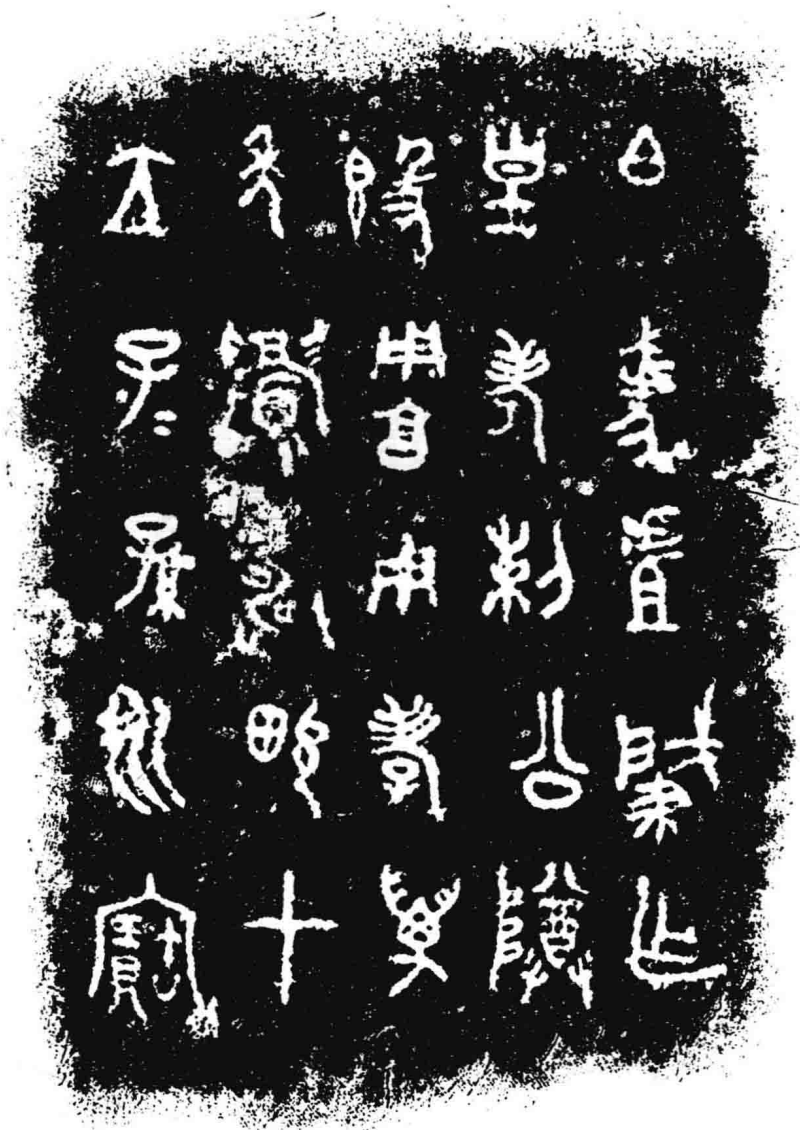 白椃虘肇乍
皇考剌公尊
𣪘用亯用孝萬
年眉壽畯才
立子=孫永寶